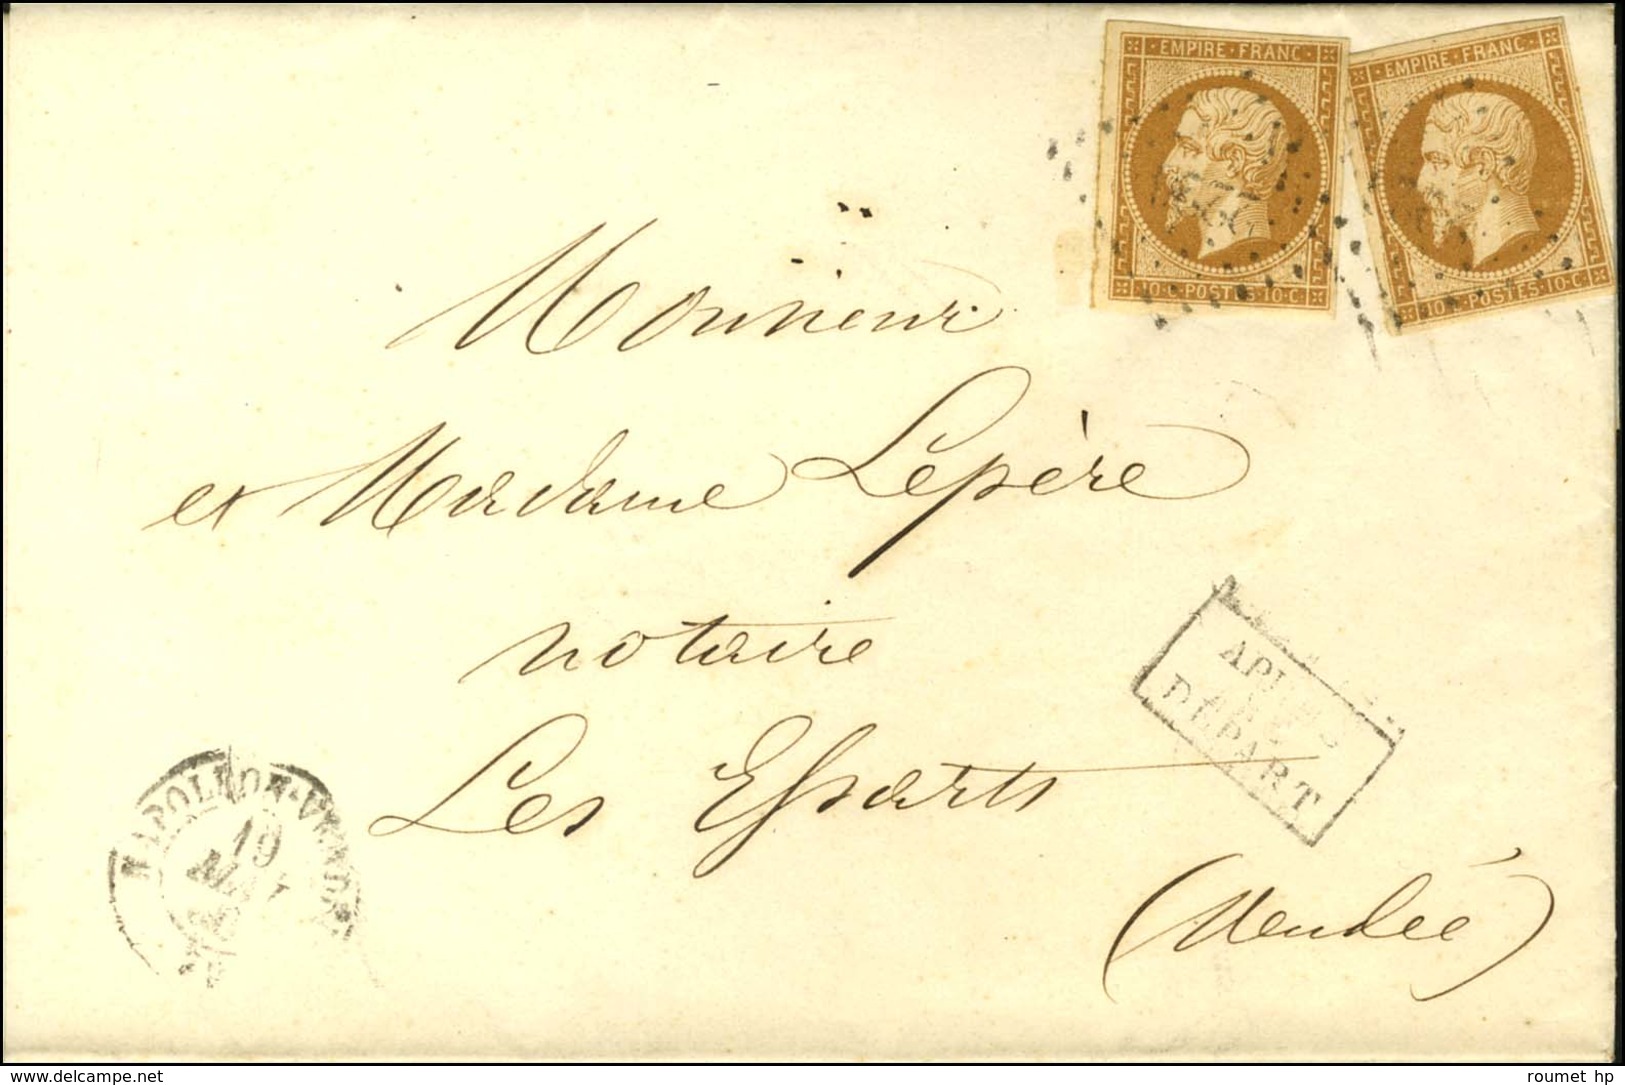 EMPIRE · FRANC
EMPIRE · FRANC
10 · C · POSTES · 10 · C ·
10 C · POSTES · 10 · C ·
Monsieur
et Madame Lepère
notaire
Les Essarts
(Vendée)
DÉPART
NAPOLÉON-VENDÉE
19
delcampe.net
roumet hp